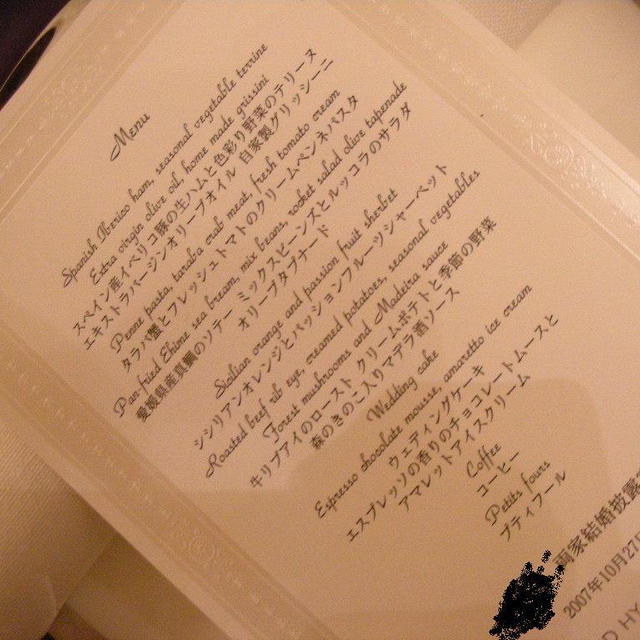 Menu
Spanish Iberico ham, seasonal vegetable terrine
Extra virgin olive oil, home made grissini
スペイン産イベリコ豚の生ハムと色彩り野菜のテリーヌ
エキストラバージンオリーブオイル 自家製グリッシーニ
Penne pasta, taraba crab meat, fresh tomato cream
タラバ蟹とフレッシュトマトのクリームペンネパスタ
Pan-fried Ehime sea bream, mix beans, rocket salad olive tapenade
愛媛県産真鯛のソテー ミックスビーンズとルッコラのサラダ
オリーブタプナード
Sicilian orange and passion fruit sherbet
シシリアンオレンジとパッションフルーツシャーベット
Roasted beef rib eye, creamed potatoes, seasonal vegetables
Forest mushrooms and Madeira sauce
牛リブアイのロースト クリームポテトと季節の野菜
森のきのこ入りマデラ酒ソース
Wedding cake
ウェディングケーキ
Espresso chocolate mousse, amaretto ice cream
エスプレッソの香りのチョコレートムースと
アマレットアイスクリーム
Coffee
コーヒー
Petits fours
プティフール
両家結婚披露
2007年10月27
D HY